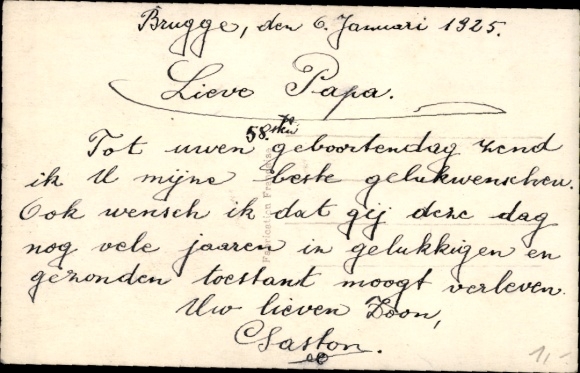 Brugge, den 6. Januari 1925.
Lieve Papa.
58.sten
Tot uwen geboortendag zend
ik U mijne beste gelukwenschen.
Ook wensch ik dat gij deze dag
nog vele jaaren in gelukkigen en
gezonden toestant moogt verleven.
Uw lieven Zoon,
Gaston.
Fabrication Française
1,-